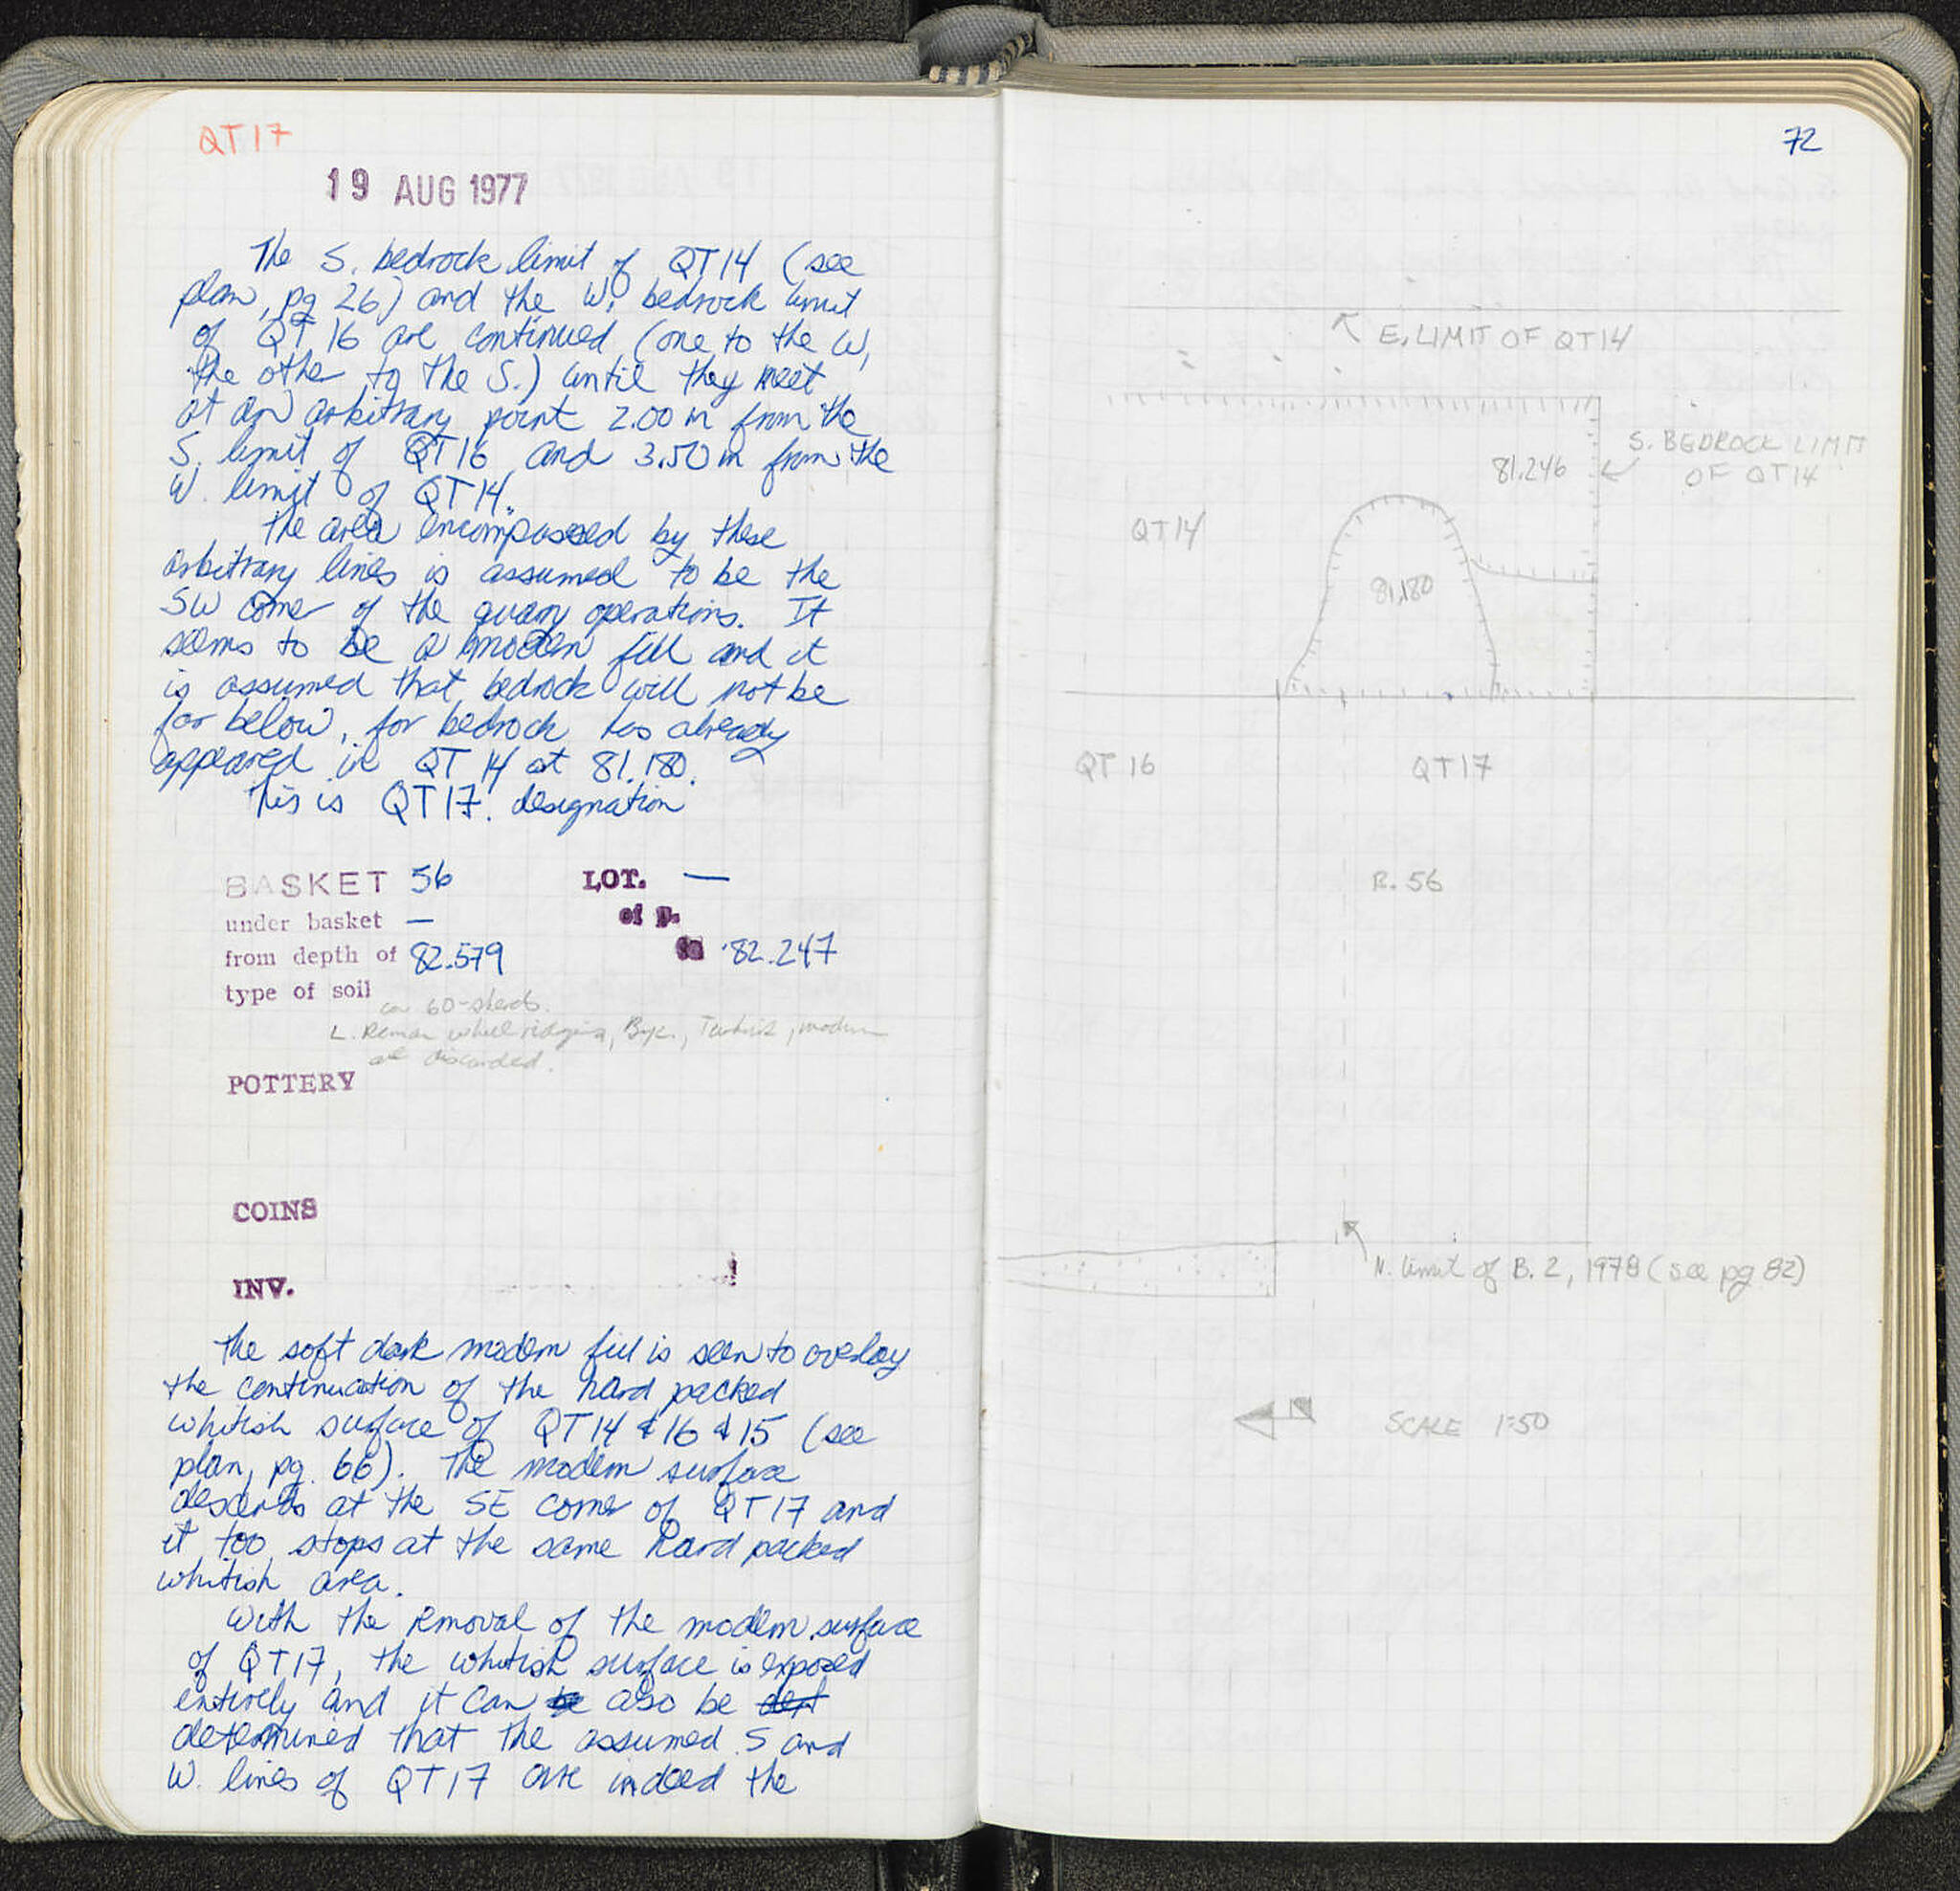 QT17
19 AUG 1977
The S. bedrock limit of QT14 (see
plan, pg 26) and the W. bedrock limit
of QT 16 are continued (one to the W,
the other to the S.) until they meet
at an arbitrary point 2.00 m from the
S. limit of QT16 and 3.50 m from the
W. limit of QT14.
The area encompassed by these
arbitrary lines is assumed to be the
SW corner of the quarry operations. It
seems to be a modern fill and it
is assumed that bedrock will not be
far below, for bedrock has already
appeared in QT 14 at 81.180.
This is QT17. designation
BASKET 56 LOT. —
under basket — of p.
from depth of 82.579 to 82.247
type of soil
ca 60 sherds.
L. Roman wheel ridging, Byz., Turkish, modern
all discarded.
POTTERY
COINS
INV.
The soft dark modern fill is seen to overlay
the continuation of the hard packed
whitish surface of QT14 & 16 & 15 (see
plan, pg. 66). The modern surface
descends at the SE corner of QT17 and
it too, stops at the same hard packed
whitish area.
With the removal of the modern surface
of QT17, the whitish surface is exposed
entirely and it can be also be det
determined that the assumed S and
W. lines of QT17 are indeed the
72
E. LIMIT OF QT14
S. BEDROCK LIMIT
OF QT14
81.246
QT14
81.180
QT 16
QT17
B. 56
N. limit of B. 2, 1978 (see pg 82)
SCALE 1:50